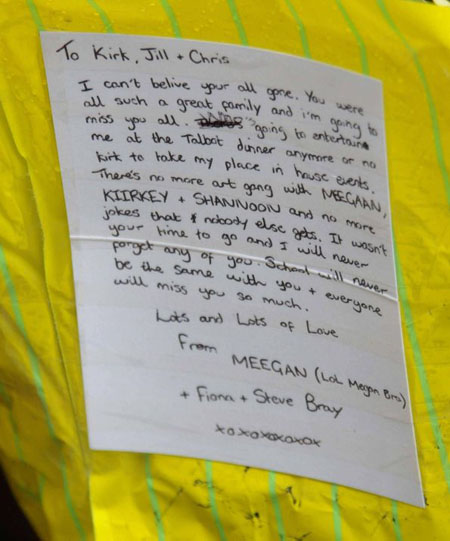 To Kirk, Jill + Chris
I can't belive your all gone. You were
all such a great family and i'm going to
miss you all. going to entertain
me at the Talbot dinner anymore or no
kirk to take my place in house events.
There's no more art gang with MEEGAAN,
KIIRKEY + SHANNOON and no more
jokes that nobody else gets. It wasn't
your time to go and I will never
forget any of you. School will never
be the same with you + everyone
will miss you so much.
Lots and Lots of Love
From
MEEGAN (LoL Megan Bray)
+ Fiona + Steve Bray
xoxoxoxoxox